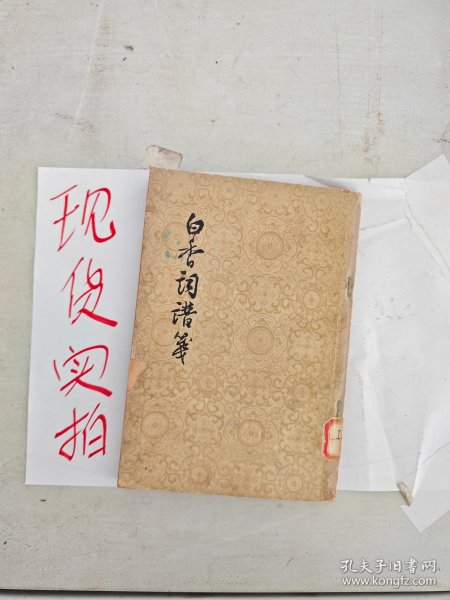 现货实拍
白香词谱笺
孔夫子旧书网
www.kongfz.com